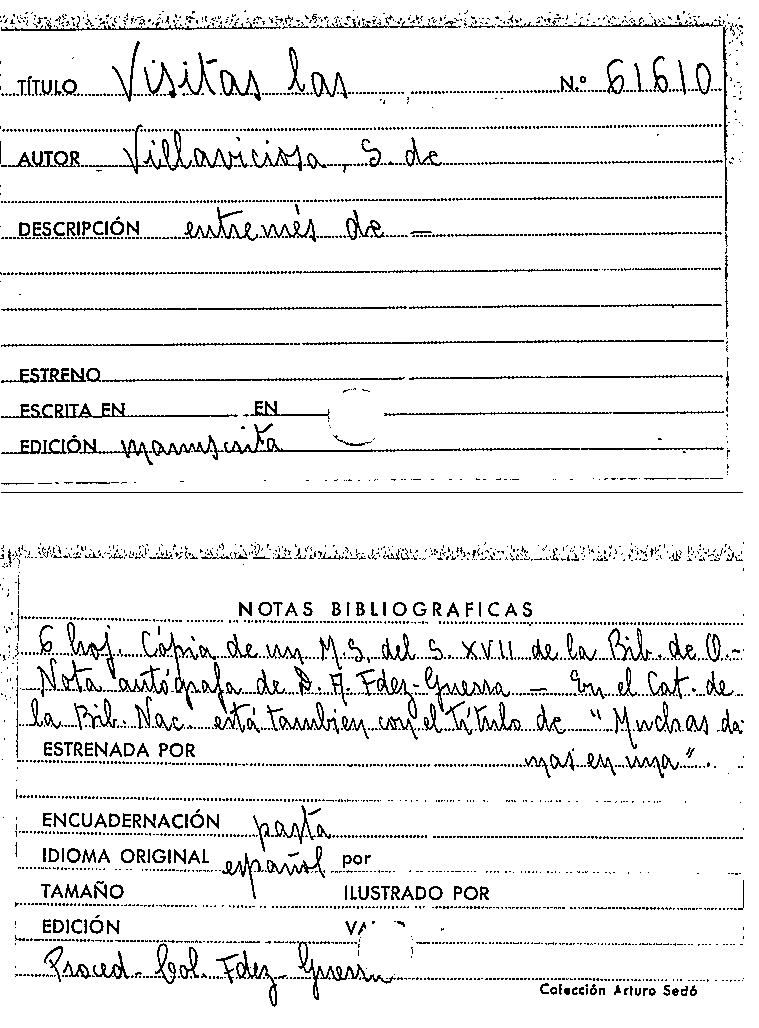 TÍTULO Visitas las N.º 61610
AUTOR Villaviciosa, S. de
DESCRIPCIÓN entremés de —
ESTRENO
ESCRITA EN EN
EDICIÓN manuscrita
NOTAS BIBLIOGRAFICAS
6 hoj. Cópia de un M.S. del S. XVII de la Bib. de O.-
Nota autógrafa de D. A. Fdez-Guerra — En el Cat. de
la Bib. Nac. está tambien con el título de "Muchas da
mas en una".
ESTRENADA POR
ENCUADERNACIÓN pasta
IDIOMA ORIGINAL español por
TAMAÑO ILUSTRADO POR
EDICIÓN
Proced. Col. Fdez-Guerra
Colección Arturo Sedó